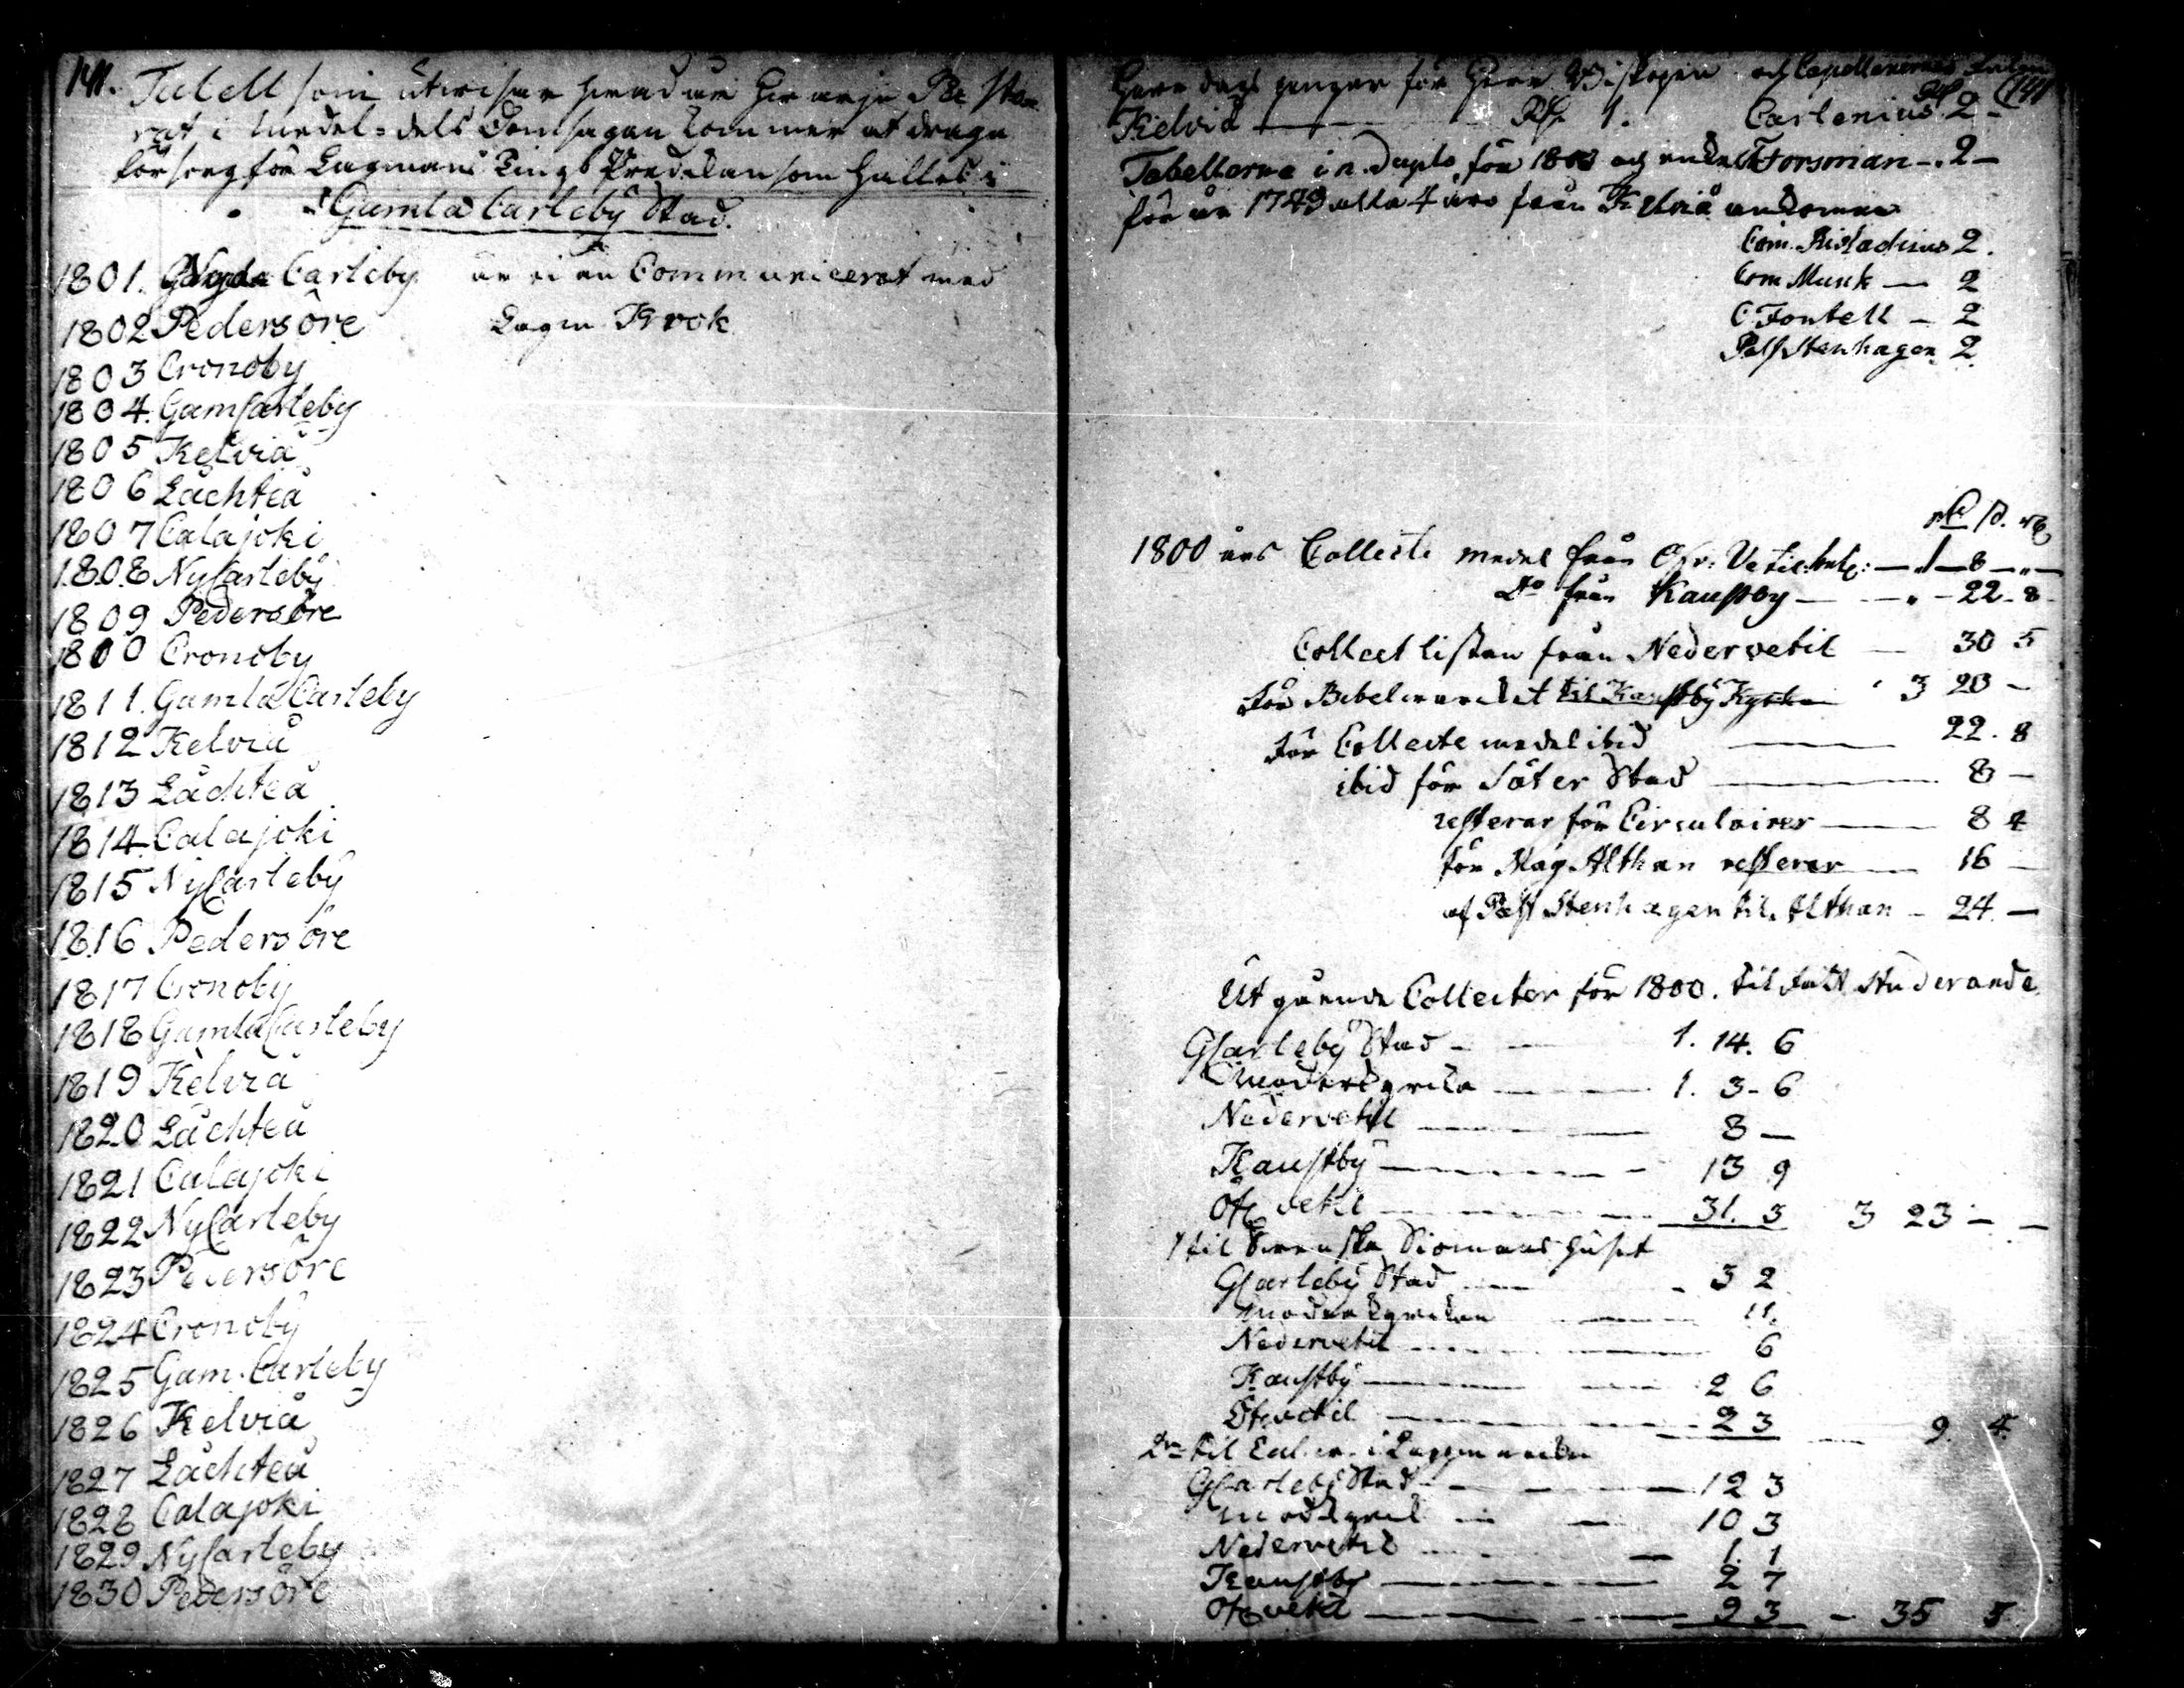 141. Tabell som utwisar hwad år hwarje Pastorat
rat i medel-dels Domsagan kommer at draga
försorg för Lagmans Tings Predikan som hålles i
Gamla Carleby Stad.
1801. Carleby är ej än Communicerat med
1802 Pedersöre Lagm. Krok
1803 Cronoby
1804. GamCarleby
1805 Kelviå
1806 Låchteå
1807 Calajoki
1808 NyCarleby
1809 Pedersöre
1800 Cronoby
1811. Gamla Carleby
1812 Kelviå
1813 Låchteå
1814 Calajoki
1815 NyCarleby
1816 Pedersöre
1817 Cronoby
1818 GamlaCarleby
1819 Kelviå
1820 Låchteå
1821 Calajoki
1822 NyCarleby
1823 Pedersöre
1824 Cronoby
1825 Gam. Carleby
1826 Kelviå
1827 Låchteå
1828 Calajoki
1829 NyCarleby
1830 Pedersöre
Herredags pengar för Herr Biskopen och Capellanernes 141
Kelviå — 1. Carlenius 2 -
Tabellerne in Duplo för 1800 och Forsman - 2 -
för år 1749 alla 4 från Kelviå ankomne
Com. 2.
Com Munk — 2
C. Fontell - 2
Past Stenhagen 2.
1800 års Collecte medel från Ofv. Vetil — 1 — 8 — " —
Do från Kaustby — " - 22 - 8
Collect listan från Nedervetil — 30 5
för Bibelwerket til Kaustby Kyrka 3 20 -
för Collecte medel ibid — 22. 8
ibid för Säter Stad — 8 -
resterar för Circulairer — 8 4
för Mag Althan resterar — 16 -
af Past Stenhagen til Althan - 24. —
Utgående Collecter för 1800. til Studerande
GCarleby Stad - 1. 14. 6
Moderkyrka — 1. 3 - 6
Nedervetil — 8 —
Kaustby — 13 9
Ofvetil — 31. 3 3 23 - -
til Svenska Siömans huset
GCarleby Stad — 3 2
Moderkyrkan — 11.
Nedervetil — 6
Kaustby — 2 6
Ofvetil — 2 3 — 9. 4.
til i Lappmarken
GCarleby Stad — 12 3
Modkyrk — 10 3
Nedervetil — 1. 1
Kaustby — 2 7
Ofvetil — 9 3 - 35 5